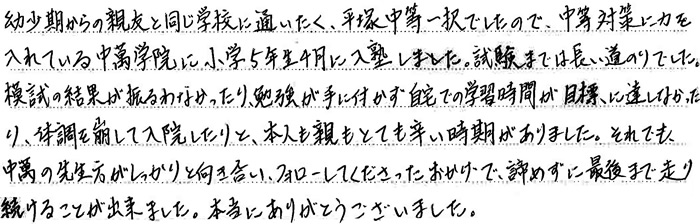 幼少期からの親友と同じ学校に通いたく、平塚中等一択でしたので、中等対策に力を
入れている中萬学院に小学5年生4月に入塾しました。試験までは長い道のりでした。
模試の結果が振るわなかったり、勉強が手に付かず自宅での学習時間が目標に達しなかった
り、体調を崩して入院したりと、本人も親もとても辛い時期がありました。それでも、
中萬の先生方がしっかりと向き合い、フォローしてくださったおかげで、諦めずに最後まで走り
続けることが出来ました。本当にありがとうございました。